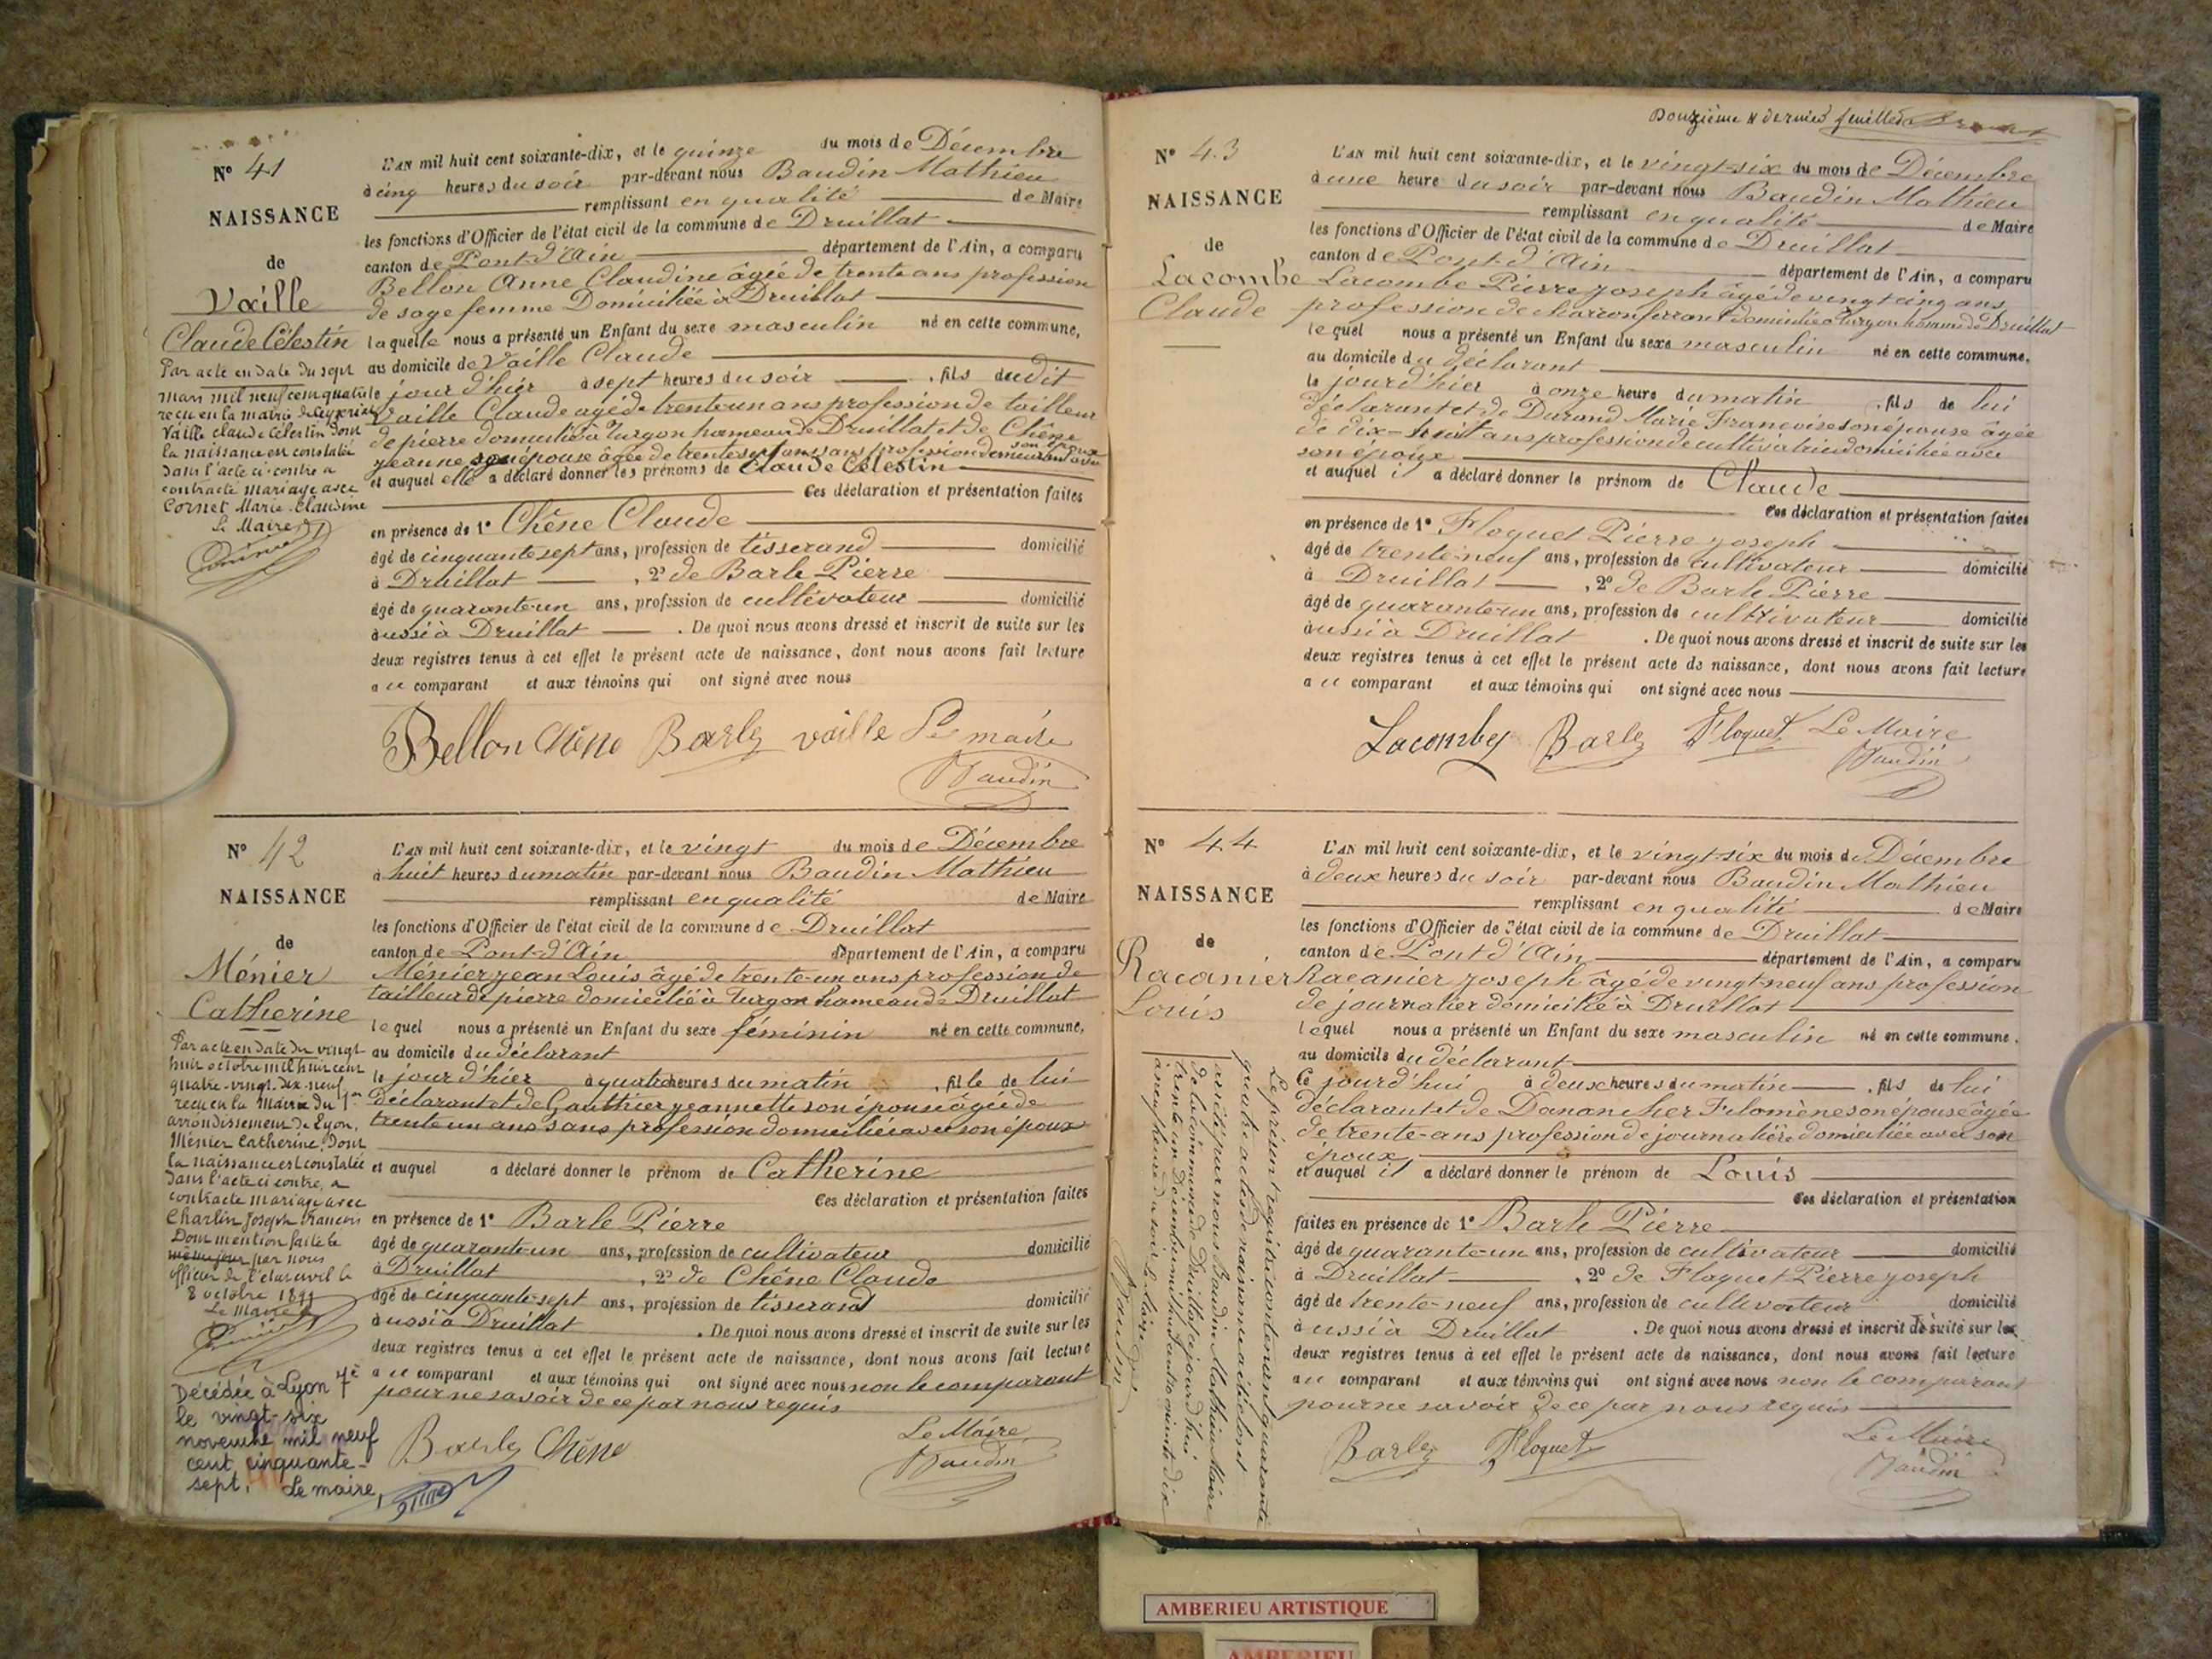 N° 41
NAISSANCE
de
Vaille
Claude Célestin
Par acte en date du sept
mars mil neuf cent quatre
reçu en la mairie de Ceyzeriat
Vaille Claude Célestin dont
la naissance est constatée
dans l'acte ci-contre a
contracté mariage avec
Cornet Marie-Claudine
Le Maire
L'AN mil huit cent soixante-dix, et le quinze du mois de Décembre
à cinq heures du soir par-devant nous Baudin Mathieu
remplissant en qualité de Maire
les fonctions d'Officier de l'état civil de la commune de Druillat
canton de Pont-d'Ain département de l'Ain, a comparu
Bellon Anne Claudine âgée de trente ans profession
de sage femme Domiciliée à Druillat
laquelle nous a présenté un Enfant du sexe masculin né en cette commune,
au domicile de Vaille Claude
le jour d'hier à sept heures du soir , fils dudit
Vaille Claude agé de trente un ans profession de tailleur
de pierre domicilié à Turgon hameau de Druillat et de Chêne
jeanne son épouse âgée de trente sept ans sans profession demeurant avec
son époux
et auquel elle a déclaré donner les prénoms de Claude Célestin
Ces déclaration et présentation faites
en présence de 1° Chêne Claude
âgé de cinquante sept ans, profession de tisserand domicilié
à Druillat , 2° de Barle Pierre
âgé de quarante-un ans, profession de cultivateur domicilié
aussi à Druillat . De quoi nous avons dressé et inscrit de suite sur les
deux registres tenus à cet effet le présent acte de naissance, dont nous avons fait lecture
au comparant et aux témoins qui ont signé avec nous
Bellon Chêne Barle vaille Le maire
Baudin
N° 42
NAISSANCE
de
Ménier
Catherine
Par acte en date du vingt
huit octobre mil huit cent
quatre-vingt-dix-neuf
reçu en la Mairie du 1er
arrondissement de Lyon,
Ménier Catherine, dont
la naissance est constatée
dans l'acte ci contre, a
contracté mariage avec
Charlin Joseph François
Dont mention faite le
même jour par nous
officier de l'état civil le
8 octobre 1899
Le Maire
Décédée à Lyon 7e
le vingt-six
novembre mil neuf
cent cinquante-
sept. Le maire,
L'AN mil huit cent soixante-dix, et le vingt du mois de Décembre
à huit heures du matin par-devant nous Baudin Mathieu
remplissant en qualité de Maire
les fonctions d'Officier de l'état civil de la commune de Druillat
canton de Pont-d'Ain département de l'Ain, a comparu
Ménier jean Louis âgé de trente-un ans profession de
tailleur de pierre domicilié à Turgon hameau de Druillat
lequel nous a présenté un Enfant du sexe féminin né en cette commune,
au domicile du déclarant
le jour d'hier à quatre heures du matin , fille de lui
déclarant et de Gauthier jeannette son épouse âgée de
trente un ans sans profession domiciliée avec son époux
et auquel a déclaré donner le prénom de Catherine
Ces déclaration et présentation faites
en présence de 1° Barle Pierre
âgé de quarante-un ans, profession de cultivateur domicilié
à Druillat , 2° de Chêne Claude
âgé de cinquante-sept ans, profession de tisserand domicilié
aussi à Druillat . De quoi nous avons dressé et inscrit de suite sur les
deux registres tenus à cet effet le présent acte de naissance, dont nous avons fait lecture
au comparant et aux témoins qui ont signé avec nous non le comparant
pour ne savoir de ce par nous requis
Barle Chêne Le Maire
Baudin
Douzième & dernier feuillet
N° 43
NAISSANCE
de
Lacombe
Claude
L'AN mil huit cent soixante-dix, et le vingt-six du mois de Décembre
à une heure du soir par-devant nous Baudin Mathieu
remplissant en qualité de Maire
les fonctions d'Officier de l'état civil de la commune de Druillat
canton de Pont-d'Ain département de l'Ain, a comparu
Lacombe Pierre joseph âgé de vingt cinq ans
profession de charron ferrant domicilié à Turgon hameau de Druillat
lequel nous a présenté un Enfant du sexe masculin né en cette commune.
au domicile du déclarant
le jour d'hier à onze heure du matin , fils de lui
déclarant et de Durand Marie Françoise son épouse âgée
de dix-huit ans profession de cultivatrice domiciliée avec
son époux
et auquel il a déclaré donner le prénom de Claude
Ces déclaration et présentation faites
en présence de 1° Floquet Pierre joseph
âgé de trente-neuf ans, profession de cultivateur domicilié
à Druillat , 2° de Barle Pierre
âgé de quarante-un ans, profession de cultivateur domicilié
aussi à Druillat . De quoi nous avons dressé et inscrit de suite sur les
deux registres tenus à cet effet le présent acte de naissance, dont nous avons fait lecture
au comparant et aux témoins qui ont signé avec nous
Lacombe Barle Floquet Le Maire
Baudin
N° 44
NAISSANCE
de
Racanier
Louis
L'AN mil huit cent soixante-dix, et le vingt-six du mois de Décembre
à deux heures du soir par-devant nous Baudin Mathieu
remplissant en qualité de Maire
les fonctions d'Officier de l'état civil de la commune de Druillat
canton de Pont d'Ain département de l'Ain, a comparu
Racanier joseph âgé de vingt-neuf ans profession
de journalier domicilié à Druillat
lequel nous a présenté un Enfant du sexe masculin né en cette commune.
au domicile du déclarant
ce jourd'hui à deux heures du matin , fils de lui
déclarant et de Donancher Filomène son épouse âgée
de trente-ans profession de journalière domiciliée avec son
époux
et auquel il a déclaré donner le prénom de Louis
Ces déclaration et présentation
faites en présence de 1° Barle Pierre
âgé de quarante-un ans, profession de cultivateur domicilié
à Druillat , 2° de Floquet Pierre joseph
âgé de trente-neuf ans, profession de cultivateur domicilié
aussi à Druillat . De quoi nous avons dressé et inscrit de suite sur les
deux registres tenus à cet effet le présent acte de naissance, dont nous avons fait lecture
au comparant et aux témoins qui ont signé avec nous non le comparant
pour ne savoir de ce par nous requis
Barle Floquet Le Maire
Baudin
Le présent registre contenant quarante
quatre actes de naissance a été clos et
arrêté par nous Baudin Mathieu Maire
de la commune de Druillat ce jourd'hui
trente un Décembre mil huit cent soixante dix
à neuf heure du soir Le Maire
Baudin
AMBERIEU ARTISTIQUE
AMBERIEU